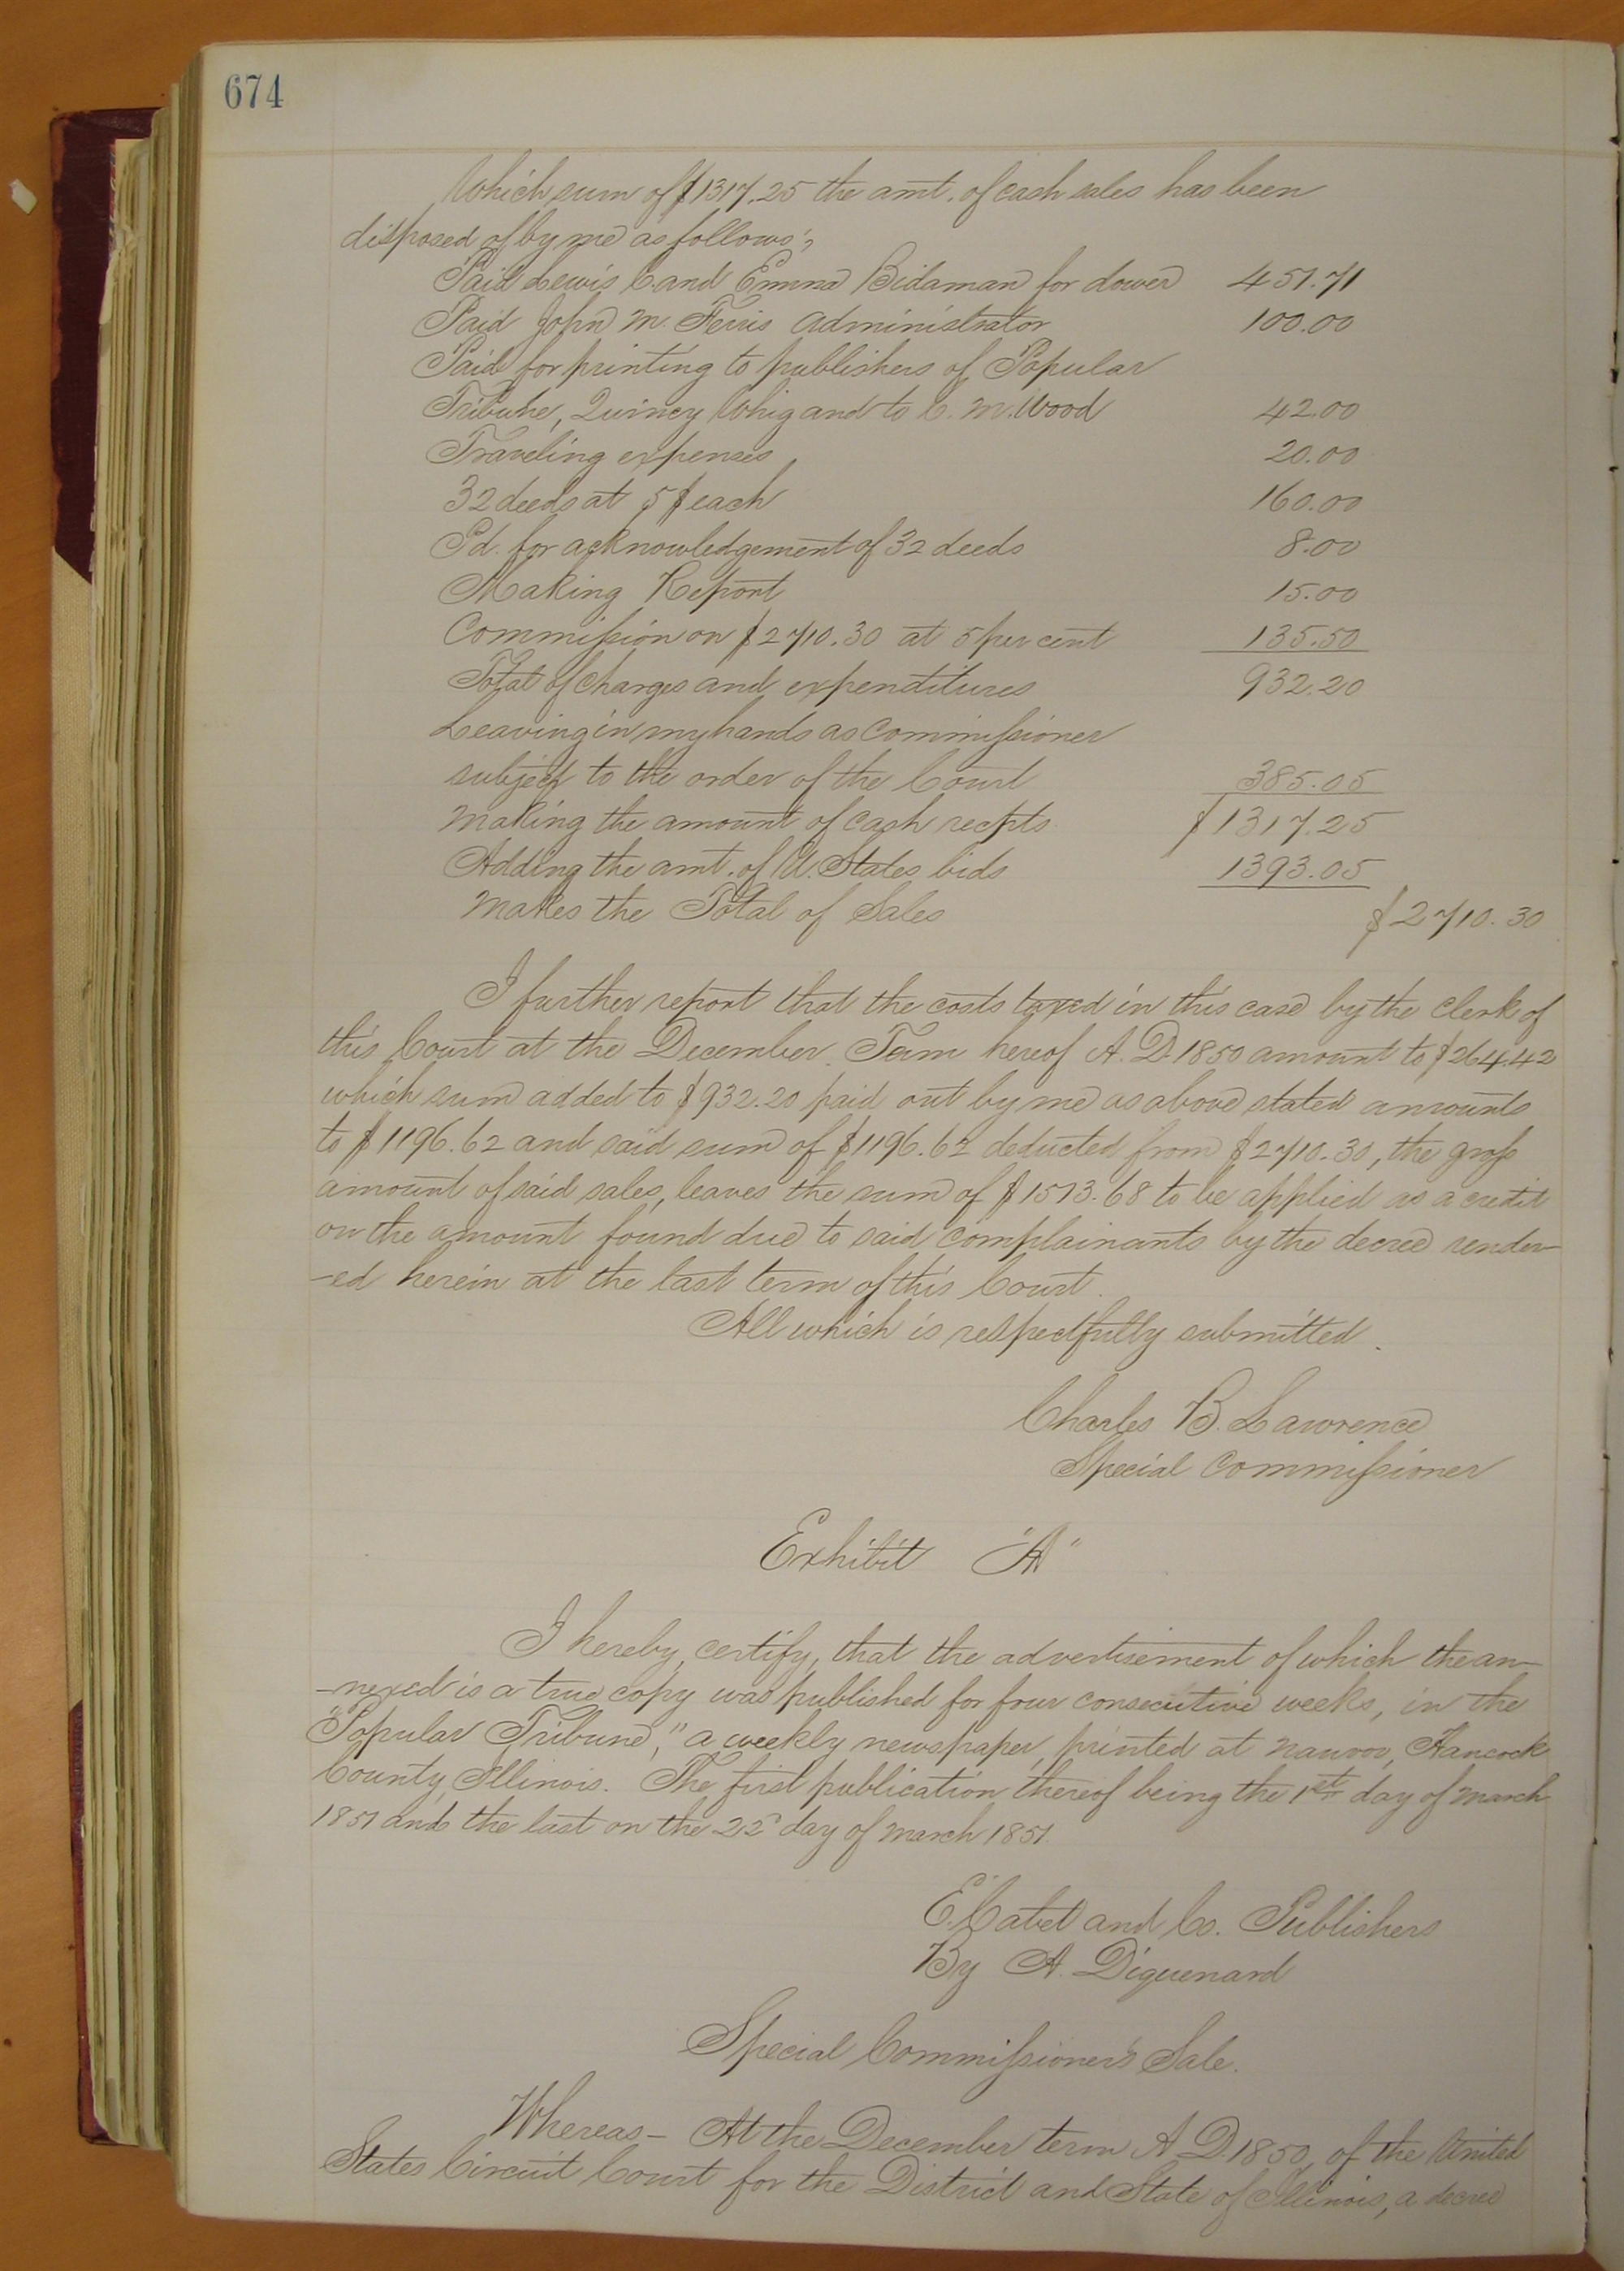 674
Which sum of $1317.25 the amt. of cash sales has been
disposed of by me as follows:,
Paid Lewis C. and Emma Bidaman for dower 451.71
Paid John M. Ferris Administrator 100.00
Paid for printing to publishers of Popular
Tribune, Quincy Whig and to C. M. Wood 42.00
Traveling expenses 20.00
32 deeds at 5$ each 160.00
Pd. for acknowledgement of 32 deeds 8.00
Making Report 15.00
Commission on $2710.30 at 5 per cent 135.50
Total of Charges and expenditures 932.20
Leaving in my hands as Commissioner
subject to the order of the Court 385.05
Making the amount of Cash recpts $1317.25
Adding the amt. of U. States bids 1393.05
Makes the Total of Sales $2710.30
I further report that the costs taxed in this case by the Clerk of
this Court at the December Term hereof A.D. 1850 amount to $264.42
which sum added to $932.20 paid out by me as above stated amounts
to $1196.62 and said sum of $1196.62 deducted from $2710.30, the gross
amount of said sales, leaves the sum of $1513.68 to be applied as a credit
on the amount found due to said Complainants by the decree render-
-ed herein at the last term of this Court.
All which is respectfully submitted.
Charles B. Lawrence
Special Commissioner
Exhibit "A"
I hereby, certify, that the advertisement of which the an-
-nexed is a true copy was published for four consecutive weeks, in the
"Popular Tribune," a weekly newspaper, printed at Nauvoo, Hancock
County, Illinois. The first publication thereof being the 1st day of March
1851 and the last on the 22d day of March 1851.
E. Cabet and Co. Publishers
By A. Diguenard
Special Commissioner's Sale.
Whereas- At the December term A.D. 1850, of the United
States Circuit Court for the District and State of Illinois, a decree